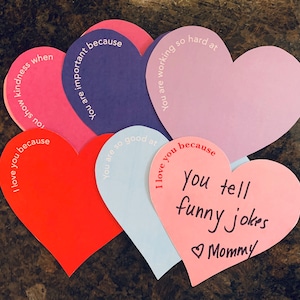 You show kindness when
You are important because
You are working so hard at
I love you because
You are so good at
I love you because
You tell
funny jokes
♡ Mommy